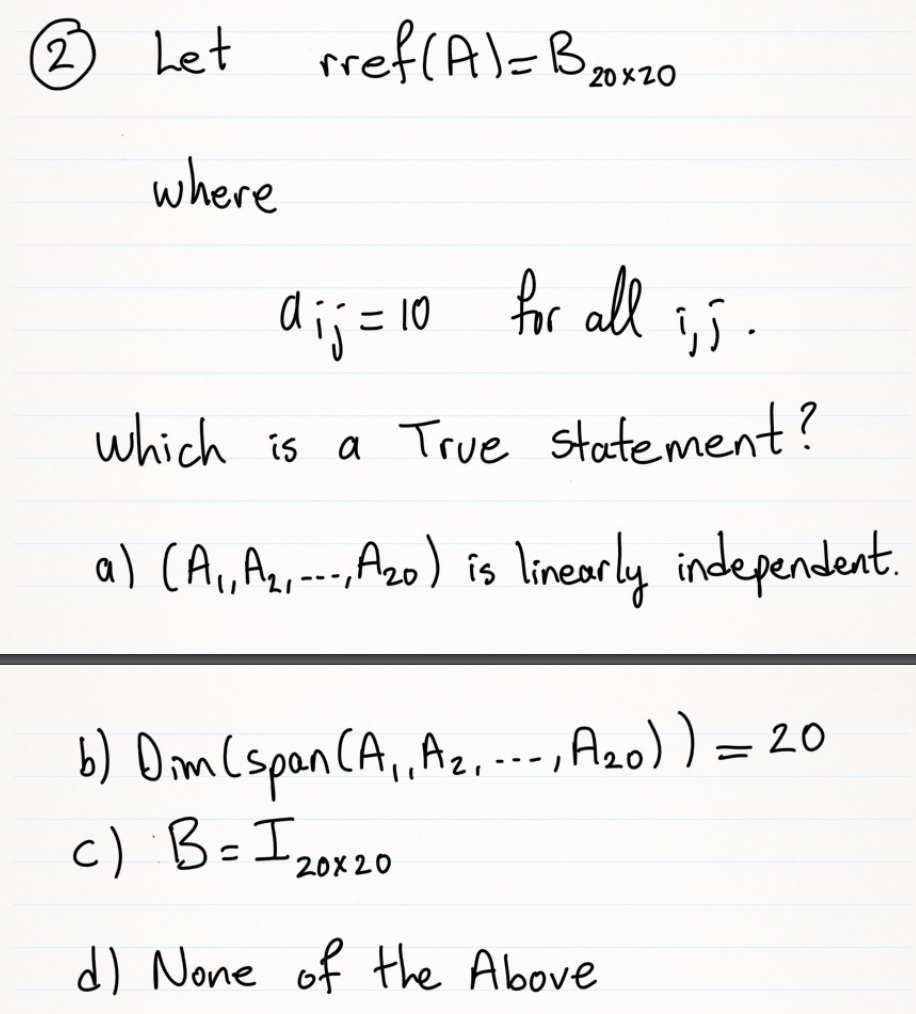 ② Let rref(A)=B₂₀ₓ₂₀
where
aᵢⱼ=10 for all i,j.
which is a True statement?
a) (A₁,A₂,---,A₂₀) is linearly independent.
b) Dim(span(A₁,A₂,---,A₂₀))=20
c) B=I₂₀ₓ₂₀
d) None of the Above